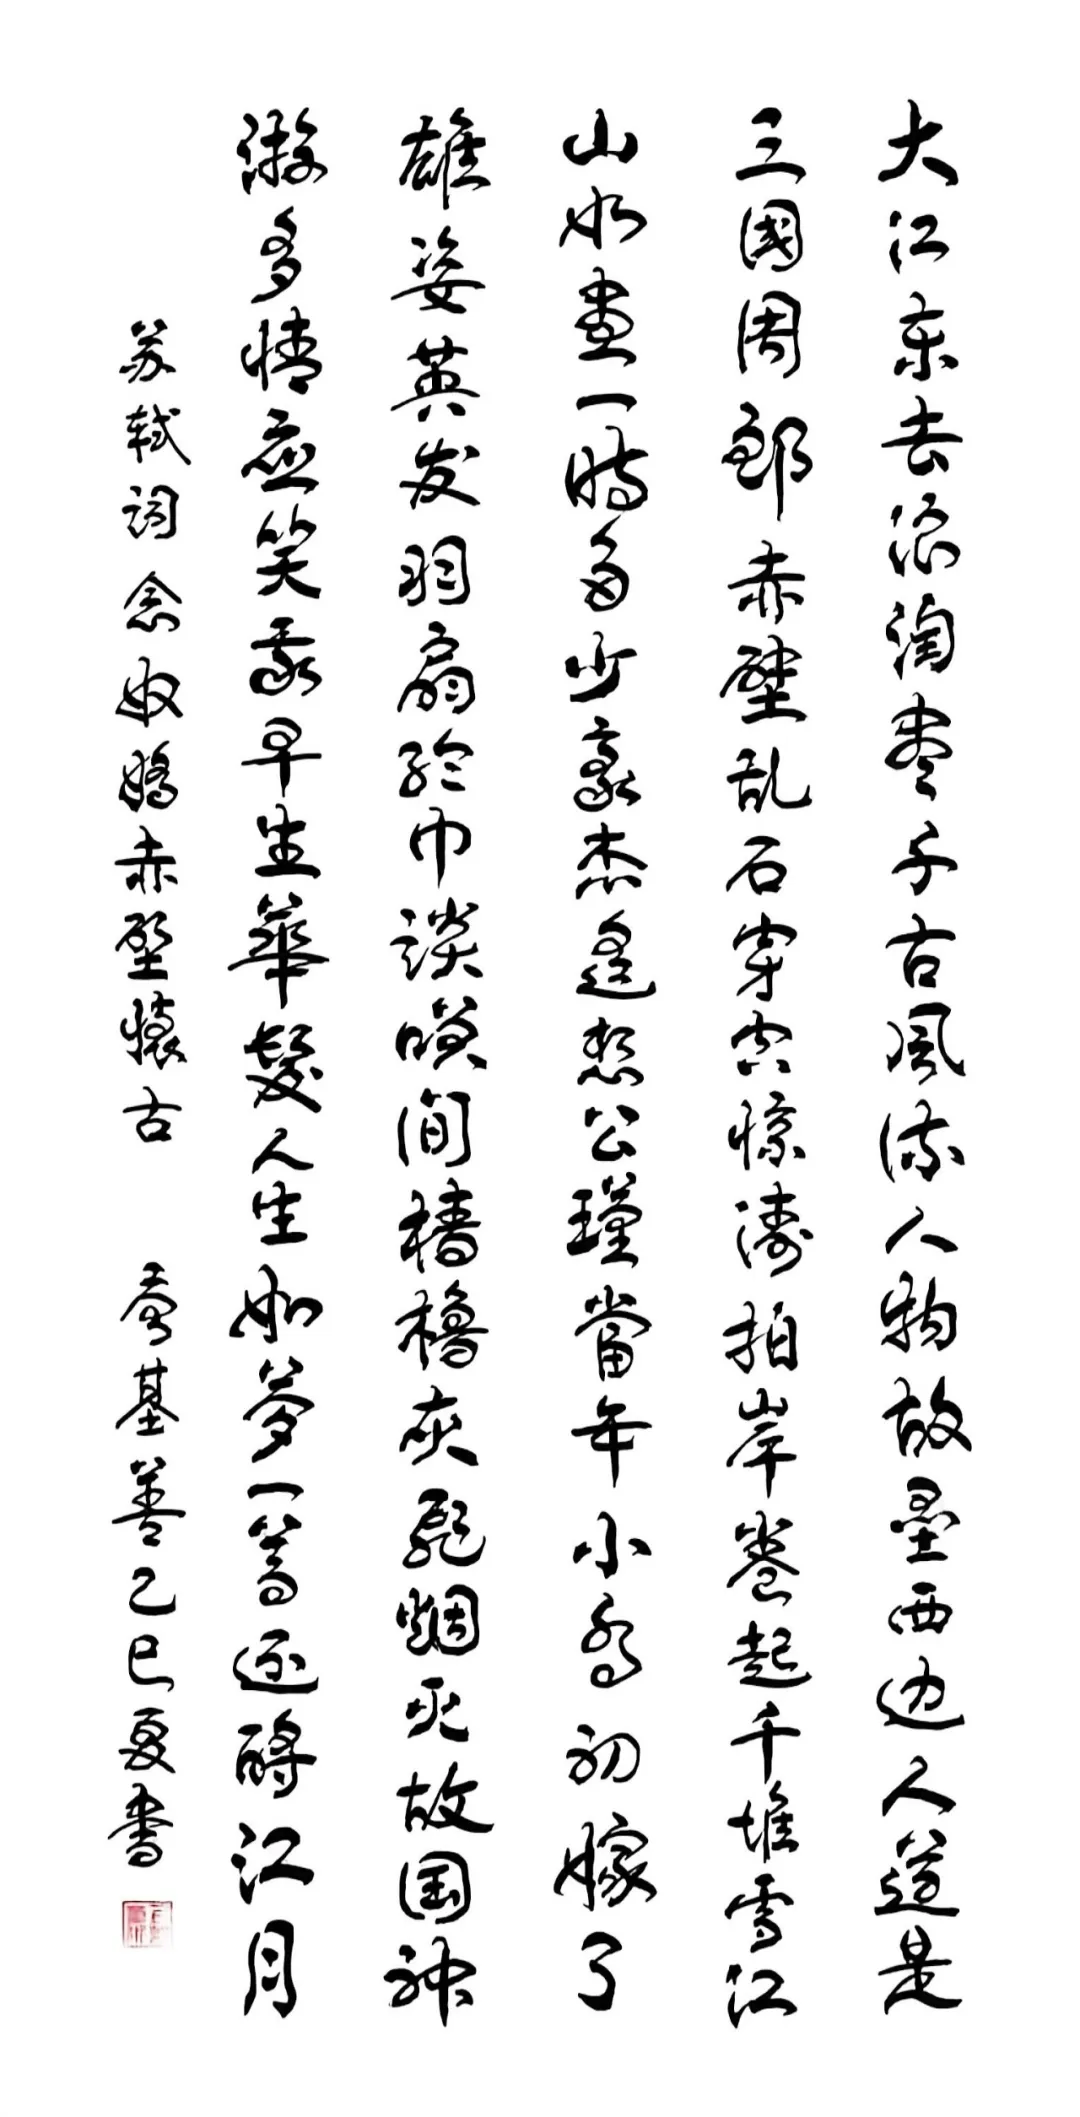 大江东去浪淘尽千古风流人物故垒西边人道是
三國周郎赤壁乱石穿空惊涛拍岸卷起千堆雪江
山如畫一時多少豪杰遥想公瑾當年小乔初嫁了
雄姿英发羽扇纶巾談笑间樯橹灰飛烟灭故国神
游多情应笑我早生華髮人生如梦一尊还酹江月
苏轼词念奴嬌赤壁懷古
基善乙巳夏書